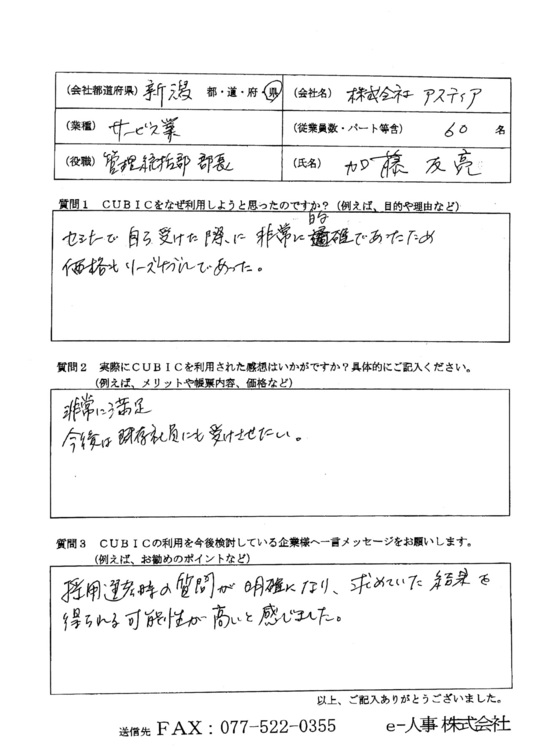 (会社都道府県) 新潟 都・道・府・県 (会社名) 株式会社 アスティア
(業種) サービス業 (従業員数・パート等含) 60 名
(役職) 管理統括部 部長 (氏名) 加藤 友亮
質問1 CUBICをなぜ利用しようと思ったのですか？(例えば、目的や理由など)
セミナーで自ら受けた際、に非常に的確であったため
価格もリーズナブルであった。
質問2 実際にCUBICを利用された感想はいかがですか？具体的にご記入ください。
(例えば、メリットや帳票内容、価格など)
非常に満足
今後は既存社員にも受けさせたい。
質問3 CUBICの利用を今後検討している企業様へ一言メッセージをお願いします。
(例えば、お勧めのポイントなど)
採用選考時の質問が明確になり、求めていた結果を
得られる可能性が高いと感じました。
以上、ご記入ありがとうございました。
送信先 FAX：077-522-0355 e-人事株式会社